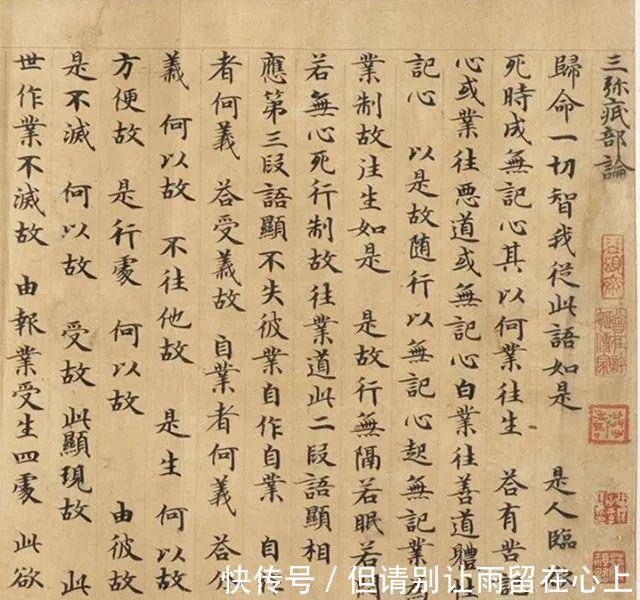 三弥底部論
歸命一切智我從此語如是 是人臨
死時成無記心其以何業往生 荅有
心或業往悪道或無記心白業往善道
記心 以是故随行以無記心起無記業
業制故往生如是 是故行無隔若眠若
若無心死行制故往業道此二段語顯相
應第三段語顯不失彼業自作自業 自
者何義 荅受義故 自業者何義 荅
義 何以故 不往他故 是生 何以故
方便故 是行處 何以故 由彼故
是不滅 何以故 受故 此顯現故 此
世作業不滅故 由報業受生四處 此欲
快传号 / 但请别让雨留在心上